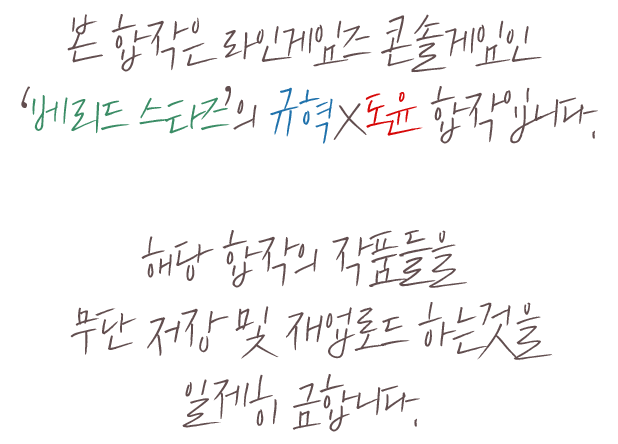 본 합작은 라인게임즈 콘솔게임인
'베리드 스타즈'의 규혁X도윤 합작입니다.
해당 합작의 작품들을
무단 저장 및 재업로드 하는것을
일제히 금합니다.